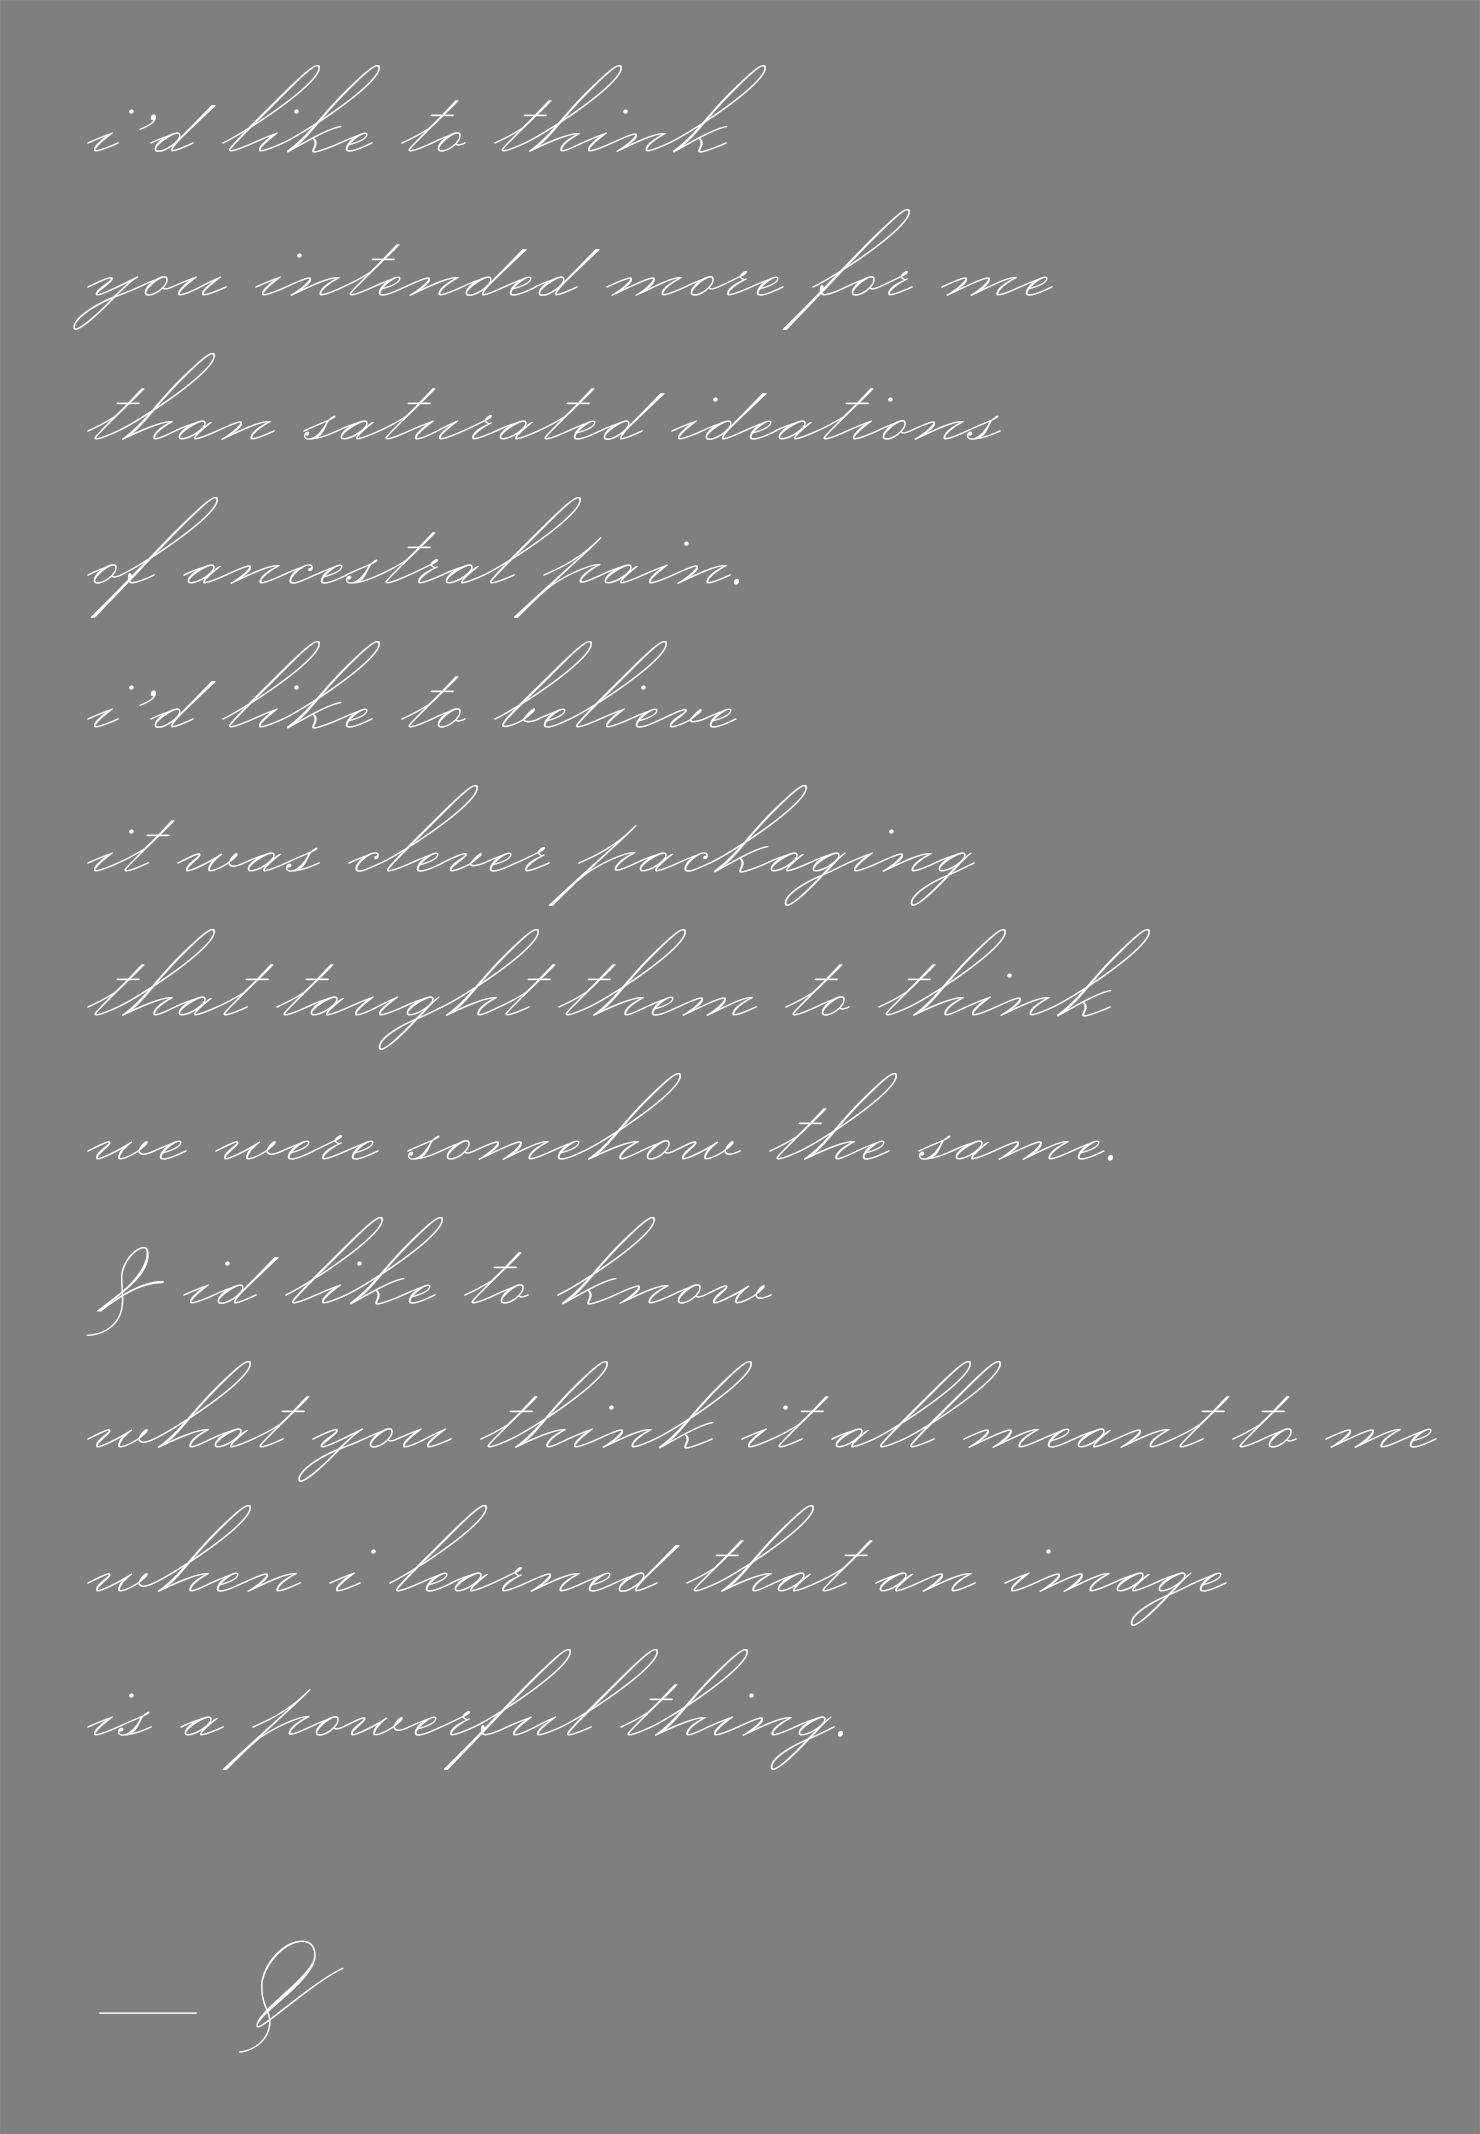 i'd like to think
you intended more for me
than saturated ideations
of ancestral pain.
i'd like to believe
it was clever packaging
that taught them to think
we were somehow the same.
& id like to know
what you think it all meant to me
when i learned that an image
is a powerful thing.
—